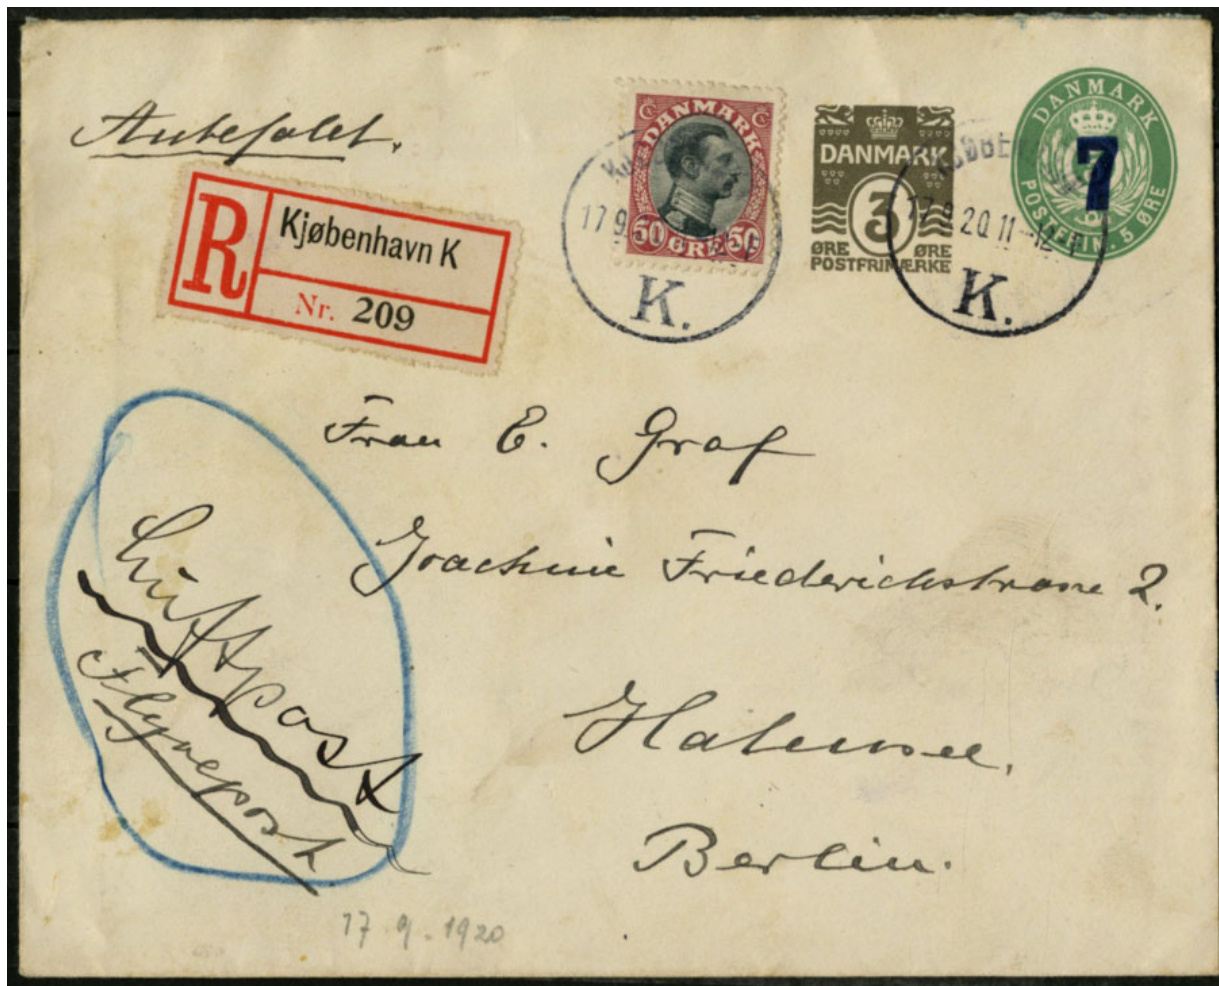 Anbefalet.
R
Kjøbenhavn K
Nr. 209
DANMARK
50 ØRE 50
K.
17.9.
DANMARK
3
ØRE ØRE
POSTFRIMÆRKE
DANMARK
7
POSTFRIM. 5 ØRE
KJØBE
17.9.20.11-12
K.
Frau E. Graf
Joachim Friedrichstrasse 2.
Halensee.
Berlin.
Luftpost
Flyvepost
17 9. 1920